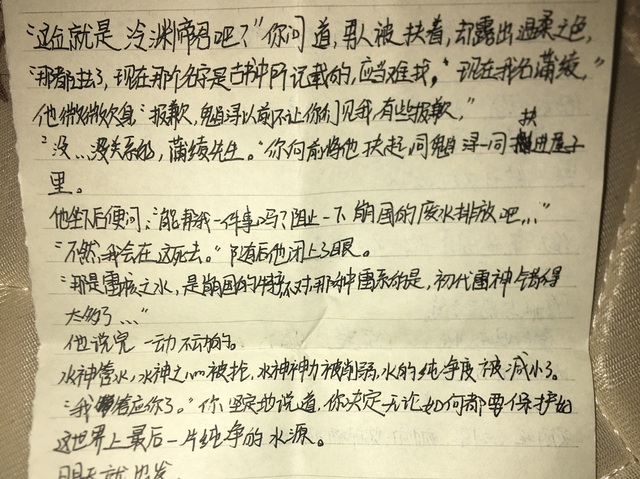 “这位就是冷渊帝君吧？”你问道，男人被扶着，却露出温柔之色，
“那都过去了，现在那个名字是古书中所记载的，应当难找，“现在我名蒲绫，”
他微微叹息：“抱歉，魁浔以前不让你们见我，有些抱歉，”
“没...没关系的，蒲绫先生。”你向前将他扶起，同魁浔一同扶进屋子
里。
他坐下后便问：“能帮我一件事吗？阻止一下崩国的废水排放吧...”
“不然，我会在这死去。”随后他闭上了眼。
“那是雷核之水，是崩国的特 不对，那种雷系的是，初代雷神错得
太多了...”
他说完一动不动的。
水神管水，水神之心被抢，水神神力被削弱，水的纯净度被减小了。
“我 应你了。”你坚定地说道，你决定无论如何都要保护好
这世界上最后一片纯净的水源。
明天就出发